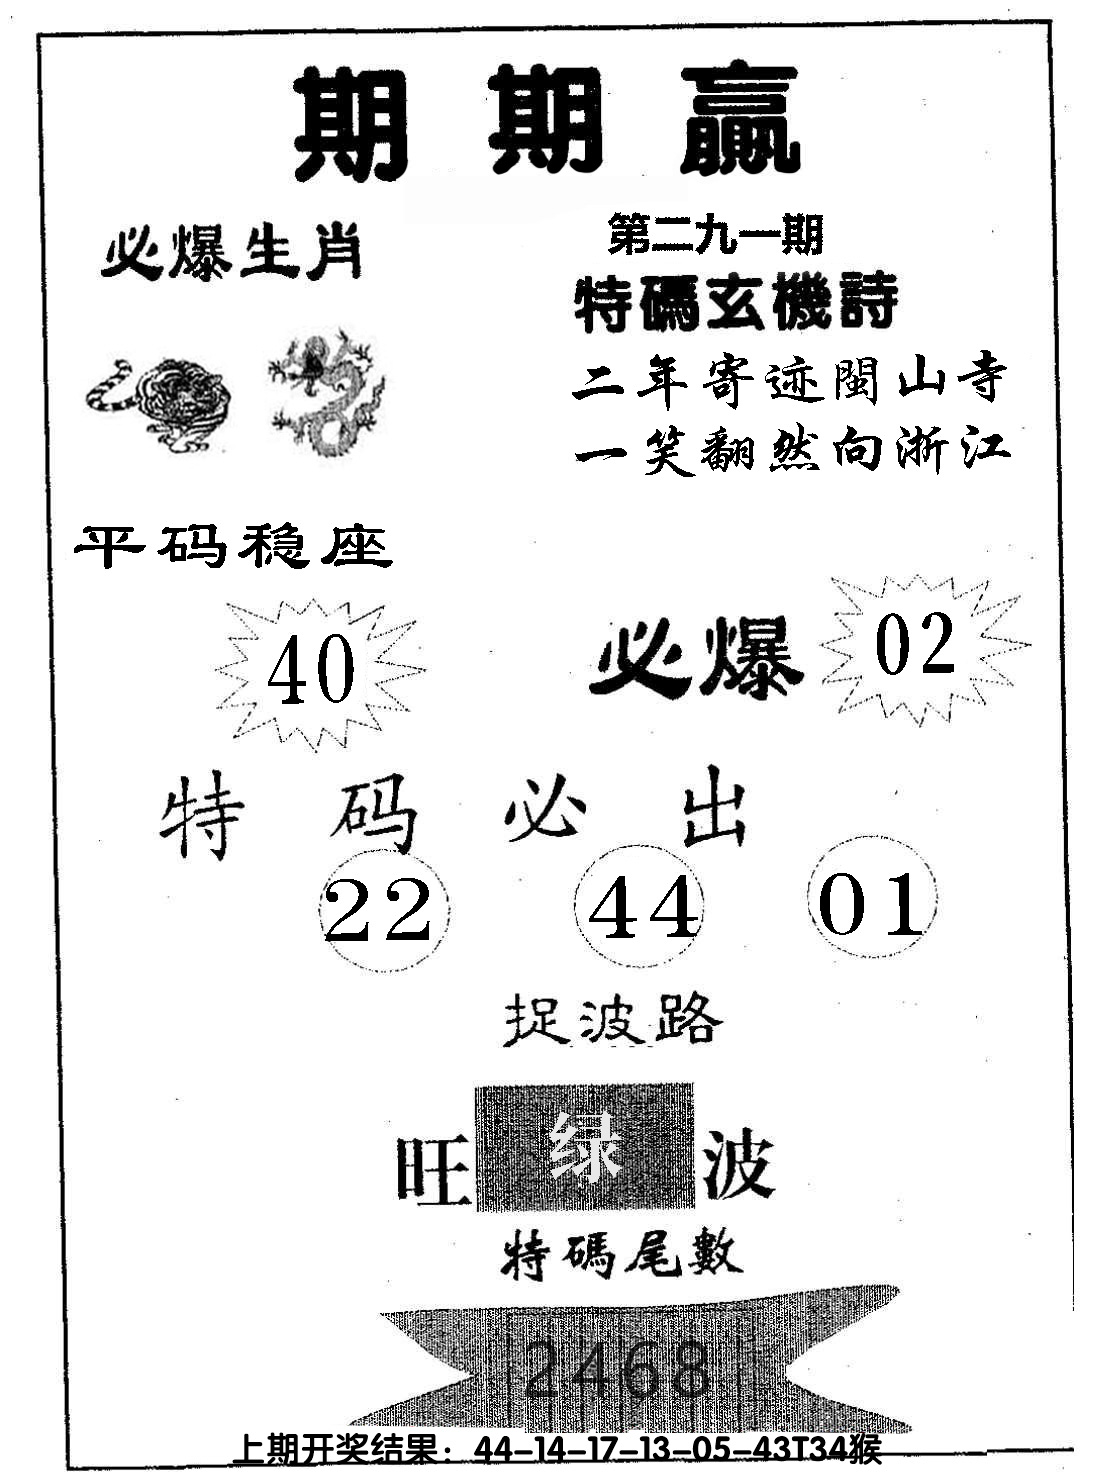 期期赢
必爆生肖
第二九一期
特碼玄機詩
二年寄迹閩山寺
一笑翻然向浙江
平码稳座
40
必爆
02
特码必出
22 44 01
捉波路
旺绿波
特碼尾數
2468
上期开奖结果：44-14-17-13-05-43T34猴